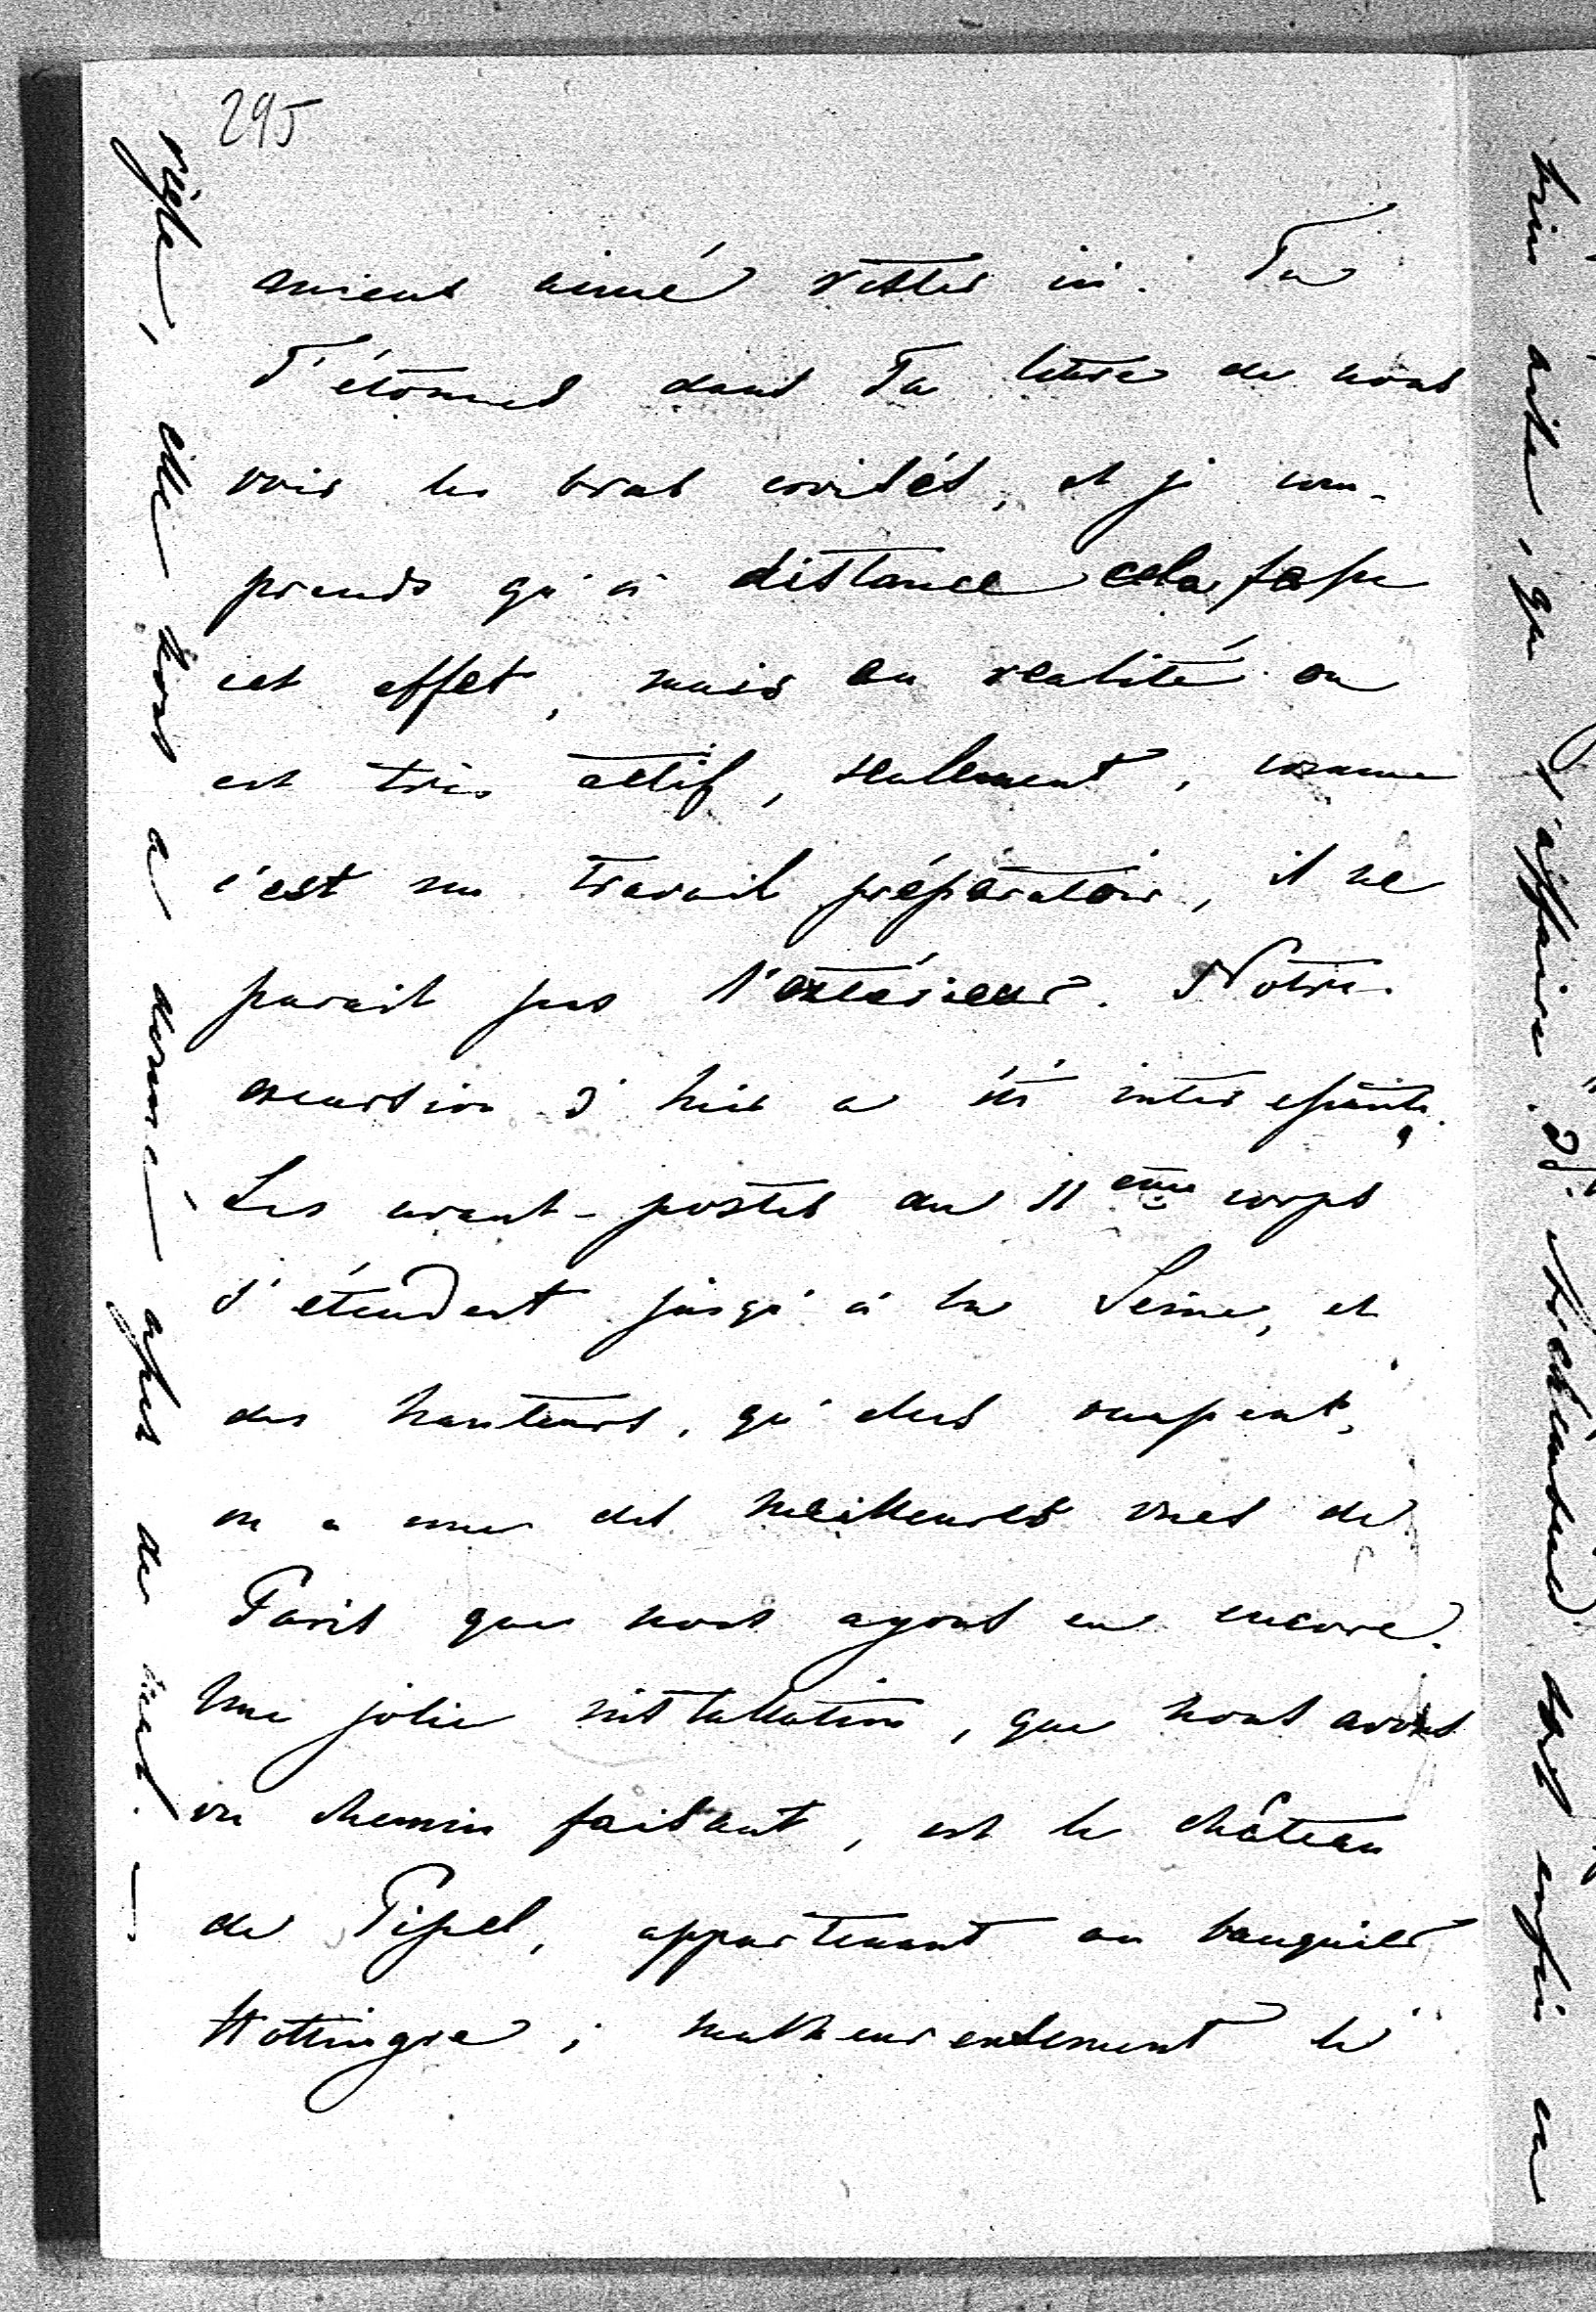 295
mieux aimé rester ici. Tu
T'étonnes dans Ta lettre de nous
voir les bras croisés, et je com-
prends qu'à distance cela fasse
cet effet, mais en realité on
est très actif, seulement, comme
c'est un travail préparatoir, il ne
parait pas l'extérieur. Notre
excursion d'hier a été interessante.
Les avant-postes du 11ème corps
s'étendent jusqu'à la Seine, et
des hauteurs, qu'elles occupent,
on a une des meilleures vues de
Paris que nous ayons eu encore.
Une jolie installation, que nous avons
vu chemin faisant, est le château
de Pipel, appartenant au banquier
Hottingre; malheureusement le
règle, elle nous a donné assez de mal. —
bien aise, que l'affaire Mecklembourg soit enfin en